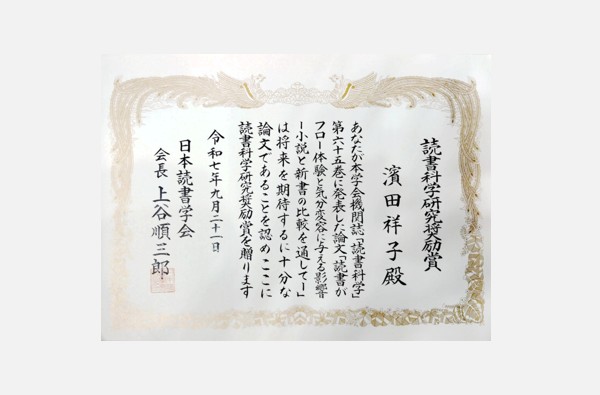 読書科学研究奨励賞
濱田祥子殿
あなたが本学会機関誌「読書科学」
第六十五巻に発表した論文「読書が
フロー体験と気分変容に与える影響
ー小説と新書の比較を通してー」
は将来を期待するに十分な
論文であることを認めここに
読書科学研究奨励賞を贈ります
令和七年九月二十一日
日本読書学会
会長 上谷順三郎